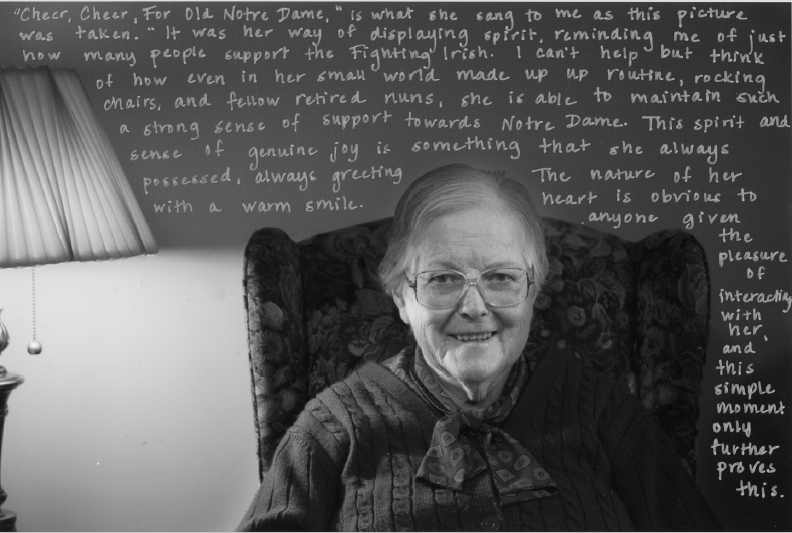 "Cheer, Cheer, For Old Notre Dame," is what she sang to me as this picture
was taken." It was her way of displaying spirit, reminding me of just
how many people support the Fighting Irish. I can't help but think
of how even in her small world made up up routine, rocking
chairs, and fellow retired nuns, she is able to maintain such
a strong sense of support towards Notre Dame. This spirit and
sense of genuine joy is something that she always
possessed, always greeting
with a warm smile.
The nature of her
heart is obvious to
anyone given
the
pleasure
of
interacting
with
her,
and
this
simple
moment
only
further
proves
this.